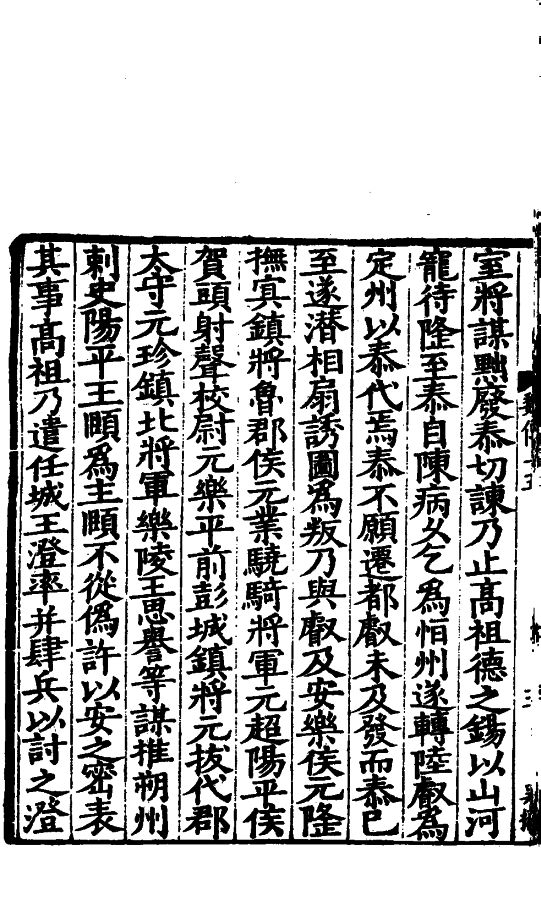 室將謀黜廢泰切諫乃止高祖德之錫以山河
寵待隆至泰自陳病久乞為恒州遂轉陸叡為
定州以泰代焉泰不願遷都叡未及發而泰已
至遂潜相扇誘圖為叛乃與叡及安樂侯元隆
撫冥鎮將魯郡侯元業驍騎將軍元超陽平侯
賀頭射聲校尉元樂平前彭城鎮將元拔代郡
太守元珍鎮北將軍樂陵王思譽等謀推朔州
刺史陽平王頤為主頤不從偽許以安之密表
其事高祖乃遣任城王澄率并肆兵以討之澄